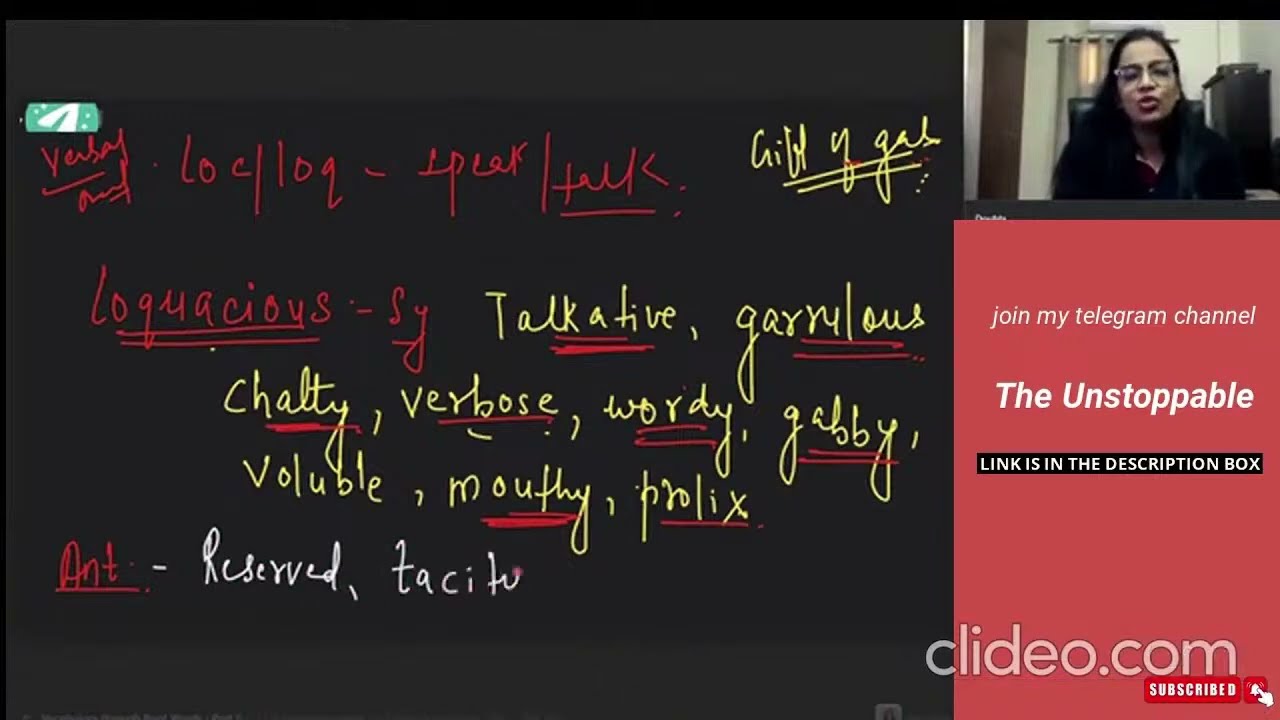 verbal
loc/loq - speak/talk.
Gift of gab
Loquacious :- Sy Talkative, garrulous
Chatty, verbose, wordy, gabby,
Voluble, mouthy, prolix
Ant. - Reserved, tacitu
join my telegram channel
The Unstoppable
LINK IS IN THE DESCRIPTION BOX
clideo.com
SUBSCRIBED